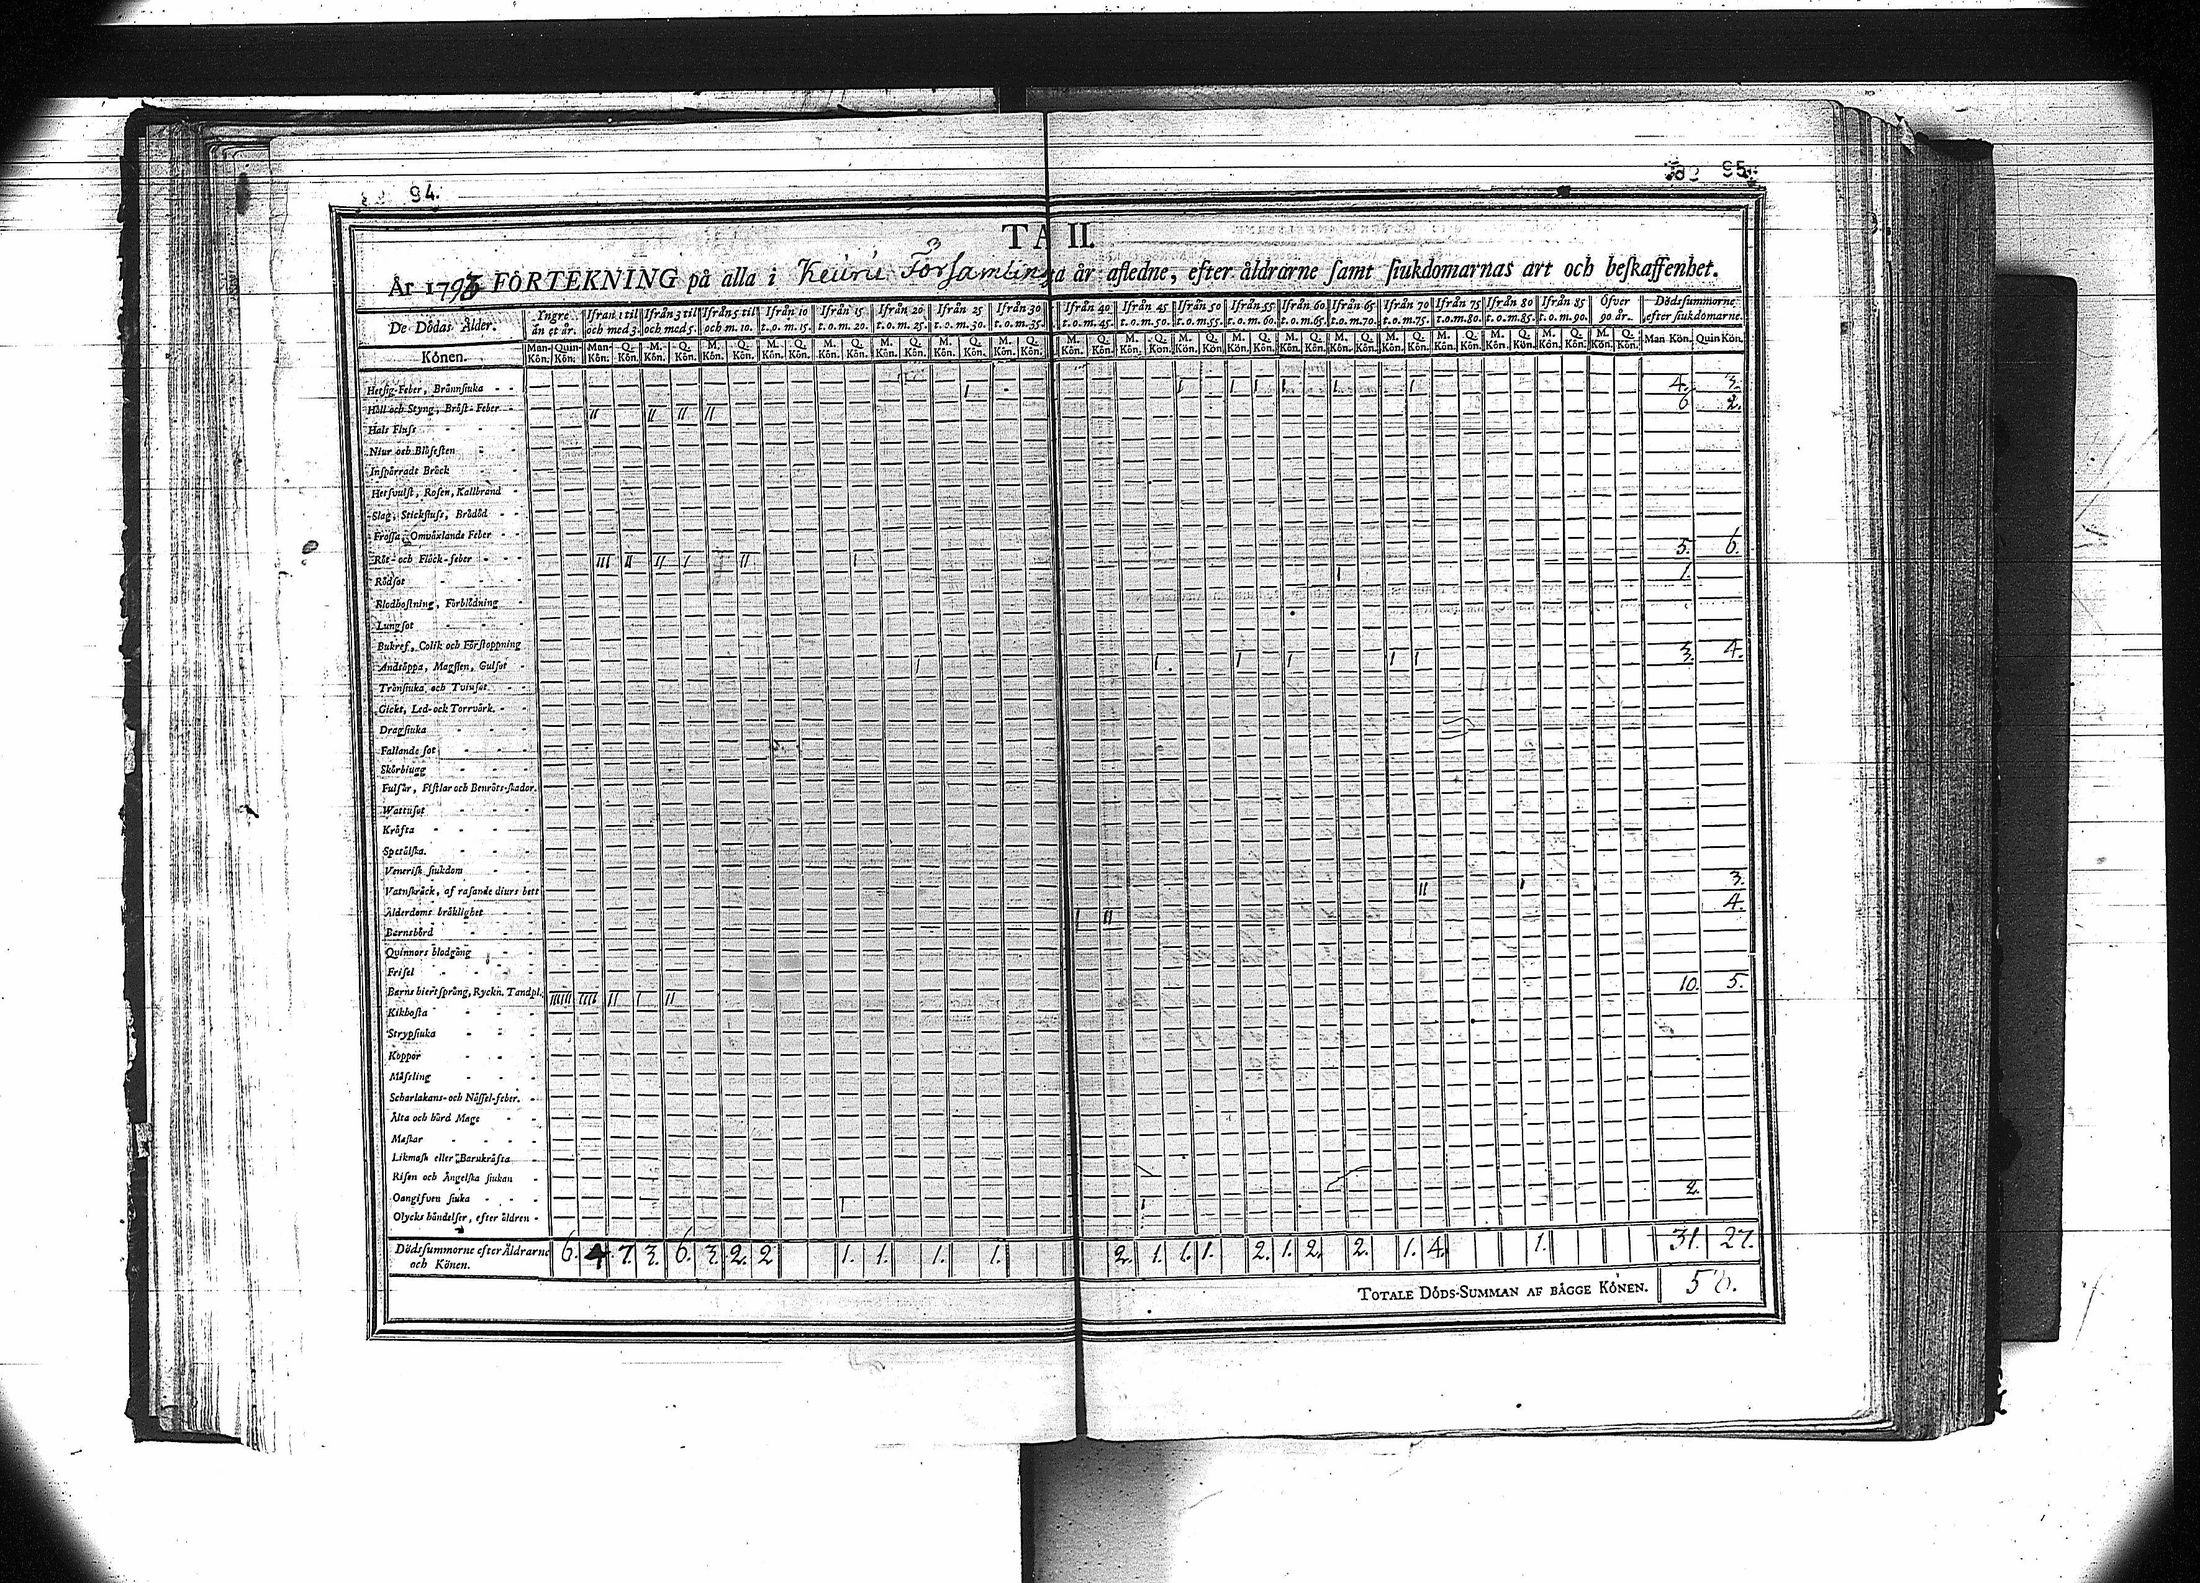 94.
95.
TA II.
År 1793 FÖRTEKNING på alla i Keuru Församling a år afledne, efter åldrarne samt siukdomarnas art och beskaffenhet.
De Dödas Ålder. Yngre än et år. Ifrån 1 til och med 3. Ifrån 3 til och med 5. Ifrån 5 til och m. 10. Ifrån 10 t. o. m. 15. Ifrån 15 t. o. m. 20. Ifrån 20 t. o. m. 25. Ifrån 25 t. o. m. 30. Ifrån 30 t. o. m. 35. Ifrån 40 t. o. m. 45. Ifrån 45 t. o. m. 50. Ifrån 50 t. o. m. 55. Ifrån 55 t. o. m. 60. Ifrån 60 t. o. m. 65. Ifrån 65 t. o. m. 70. Ifrån 70 t. o. m. 75. Ifrån 75 t. o. m. 80. Ifrån 80 t. o. m. 85. Ifrån 85 t. o. m. 90. Öfver 90 år. Dödssummorne efter siukdomarne.
Könen. Man-Kön. Quin-Kön. Man-Kön. Q. Kön. M. Kön. Q. Kön. M. Kön. Q. Kön. M. Kön. Q. Kön. M. Kön. Q. Kön. M. Kön. Q. Kön. M. Kön. Q. Kön. M. Kön. Q. Kön. M. Kön. Q. Kön. M. Kön. Q. Kön. M. Kön. Q. Kön. M. Kön. Q. Kön. M. Kön. Q. Kön. M. Kön. Q. Kön. M. Kön. Q. Kön. M. Kön. Q. Kön. M. Kön. Q. Kön. M. Kön. Q. Kön. Man Kön. Quin Kön.
Hetsig-Feber, Brännsiuka - - I I I I I I I 4. 3.
Håll och Styng, Bröst-Feber - II II II II 6 2.
Hals Fluss
Niur och Blåsesten
Inspärradt Bråck
Hetsvulst, Rosen, Kallbrand
Slag, Stickfluss, Brådöd
Frossa, Omväxlande Feber
Röt- och Fläck-feber III II II I II I 5. 6.
Rödsot I 1.
Blodhostning, Förblödning
Lungsot
Bukref, Colik och Förstoppning
Andtäppa, Magsten, Gulsot I I I I I I 3. 4.
Trånsiuka och Tvinsot
Gickt, Led- och Torrvärk.
Dragsiuka
Fallande sot
Skörbiugg
Fulsår, Fistlar och Benröte-skador.
Wattusot
Kräfta
Spetälska.
Venerisk siukdom
Vatnskräck, af rasande diurs bett
Ålderdoms bräklighet II I 3.
Barnsbörd I II 4.
Quinnors blodgång
Frisel
Barns hiertsprång, Ryckn. Tandpl. IIIIII IIII II I II 10. 5.
Kikhosta
Strypsiuka
Koppor
Mässling
Scharlakans- och Nässel-feber.
Älta och hård Mage
Maskar
Likmask eller Barnkräfta
Risen och Ängelska siukan
Oangifven siuka
Olycks händelser, efter åldren - I I 2.
Dödssummorne efter Åldrarne och Könen. 6. 4 7. 3. 6. 3. 2. 2 1. 1. 1. 1. 2. 1. 1. 1. 2. 1. 2. 2. 1. 4. 1. 31. 27.
TOTALE DÖDS-SUMMAN AF BÄGGE KÖNEN. 58.